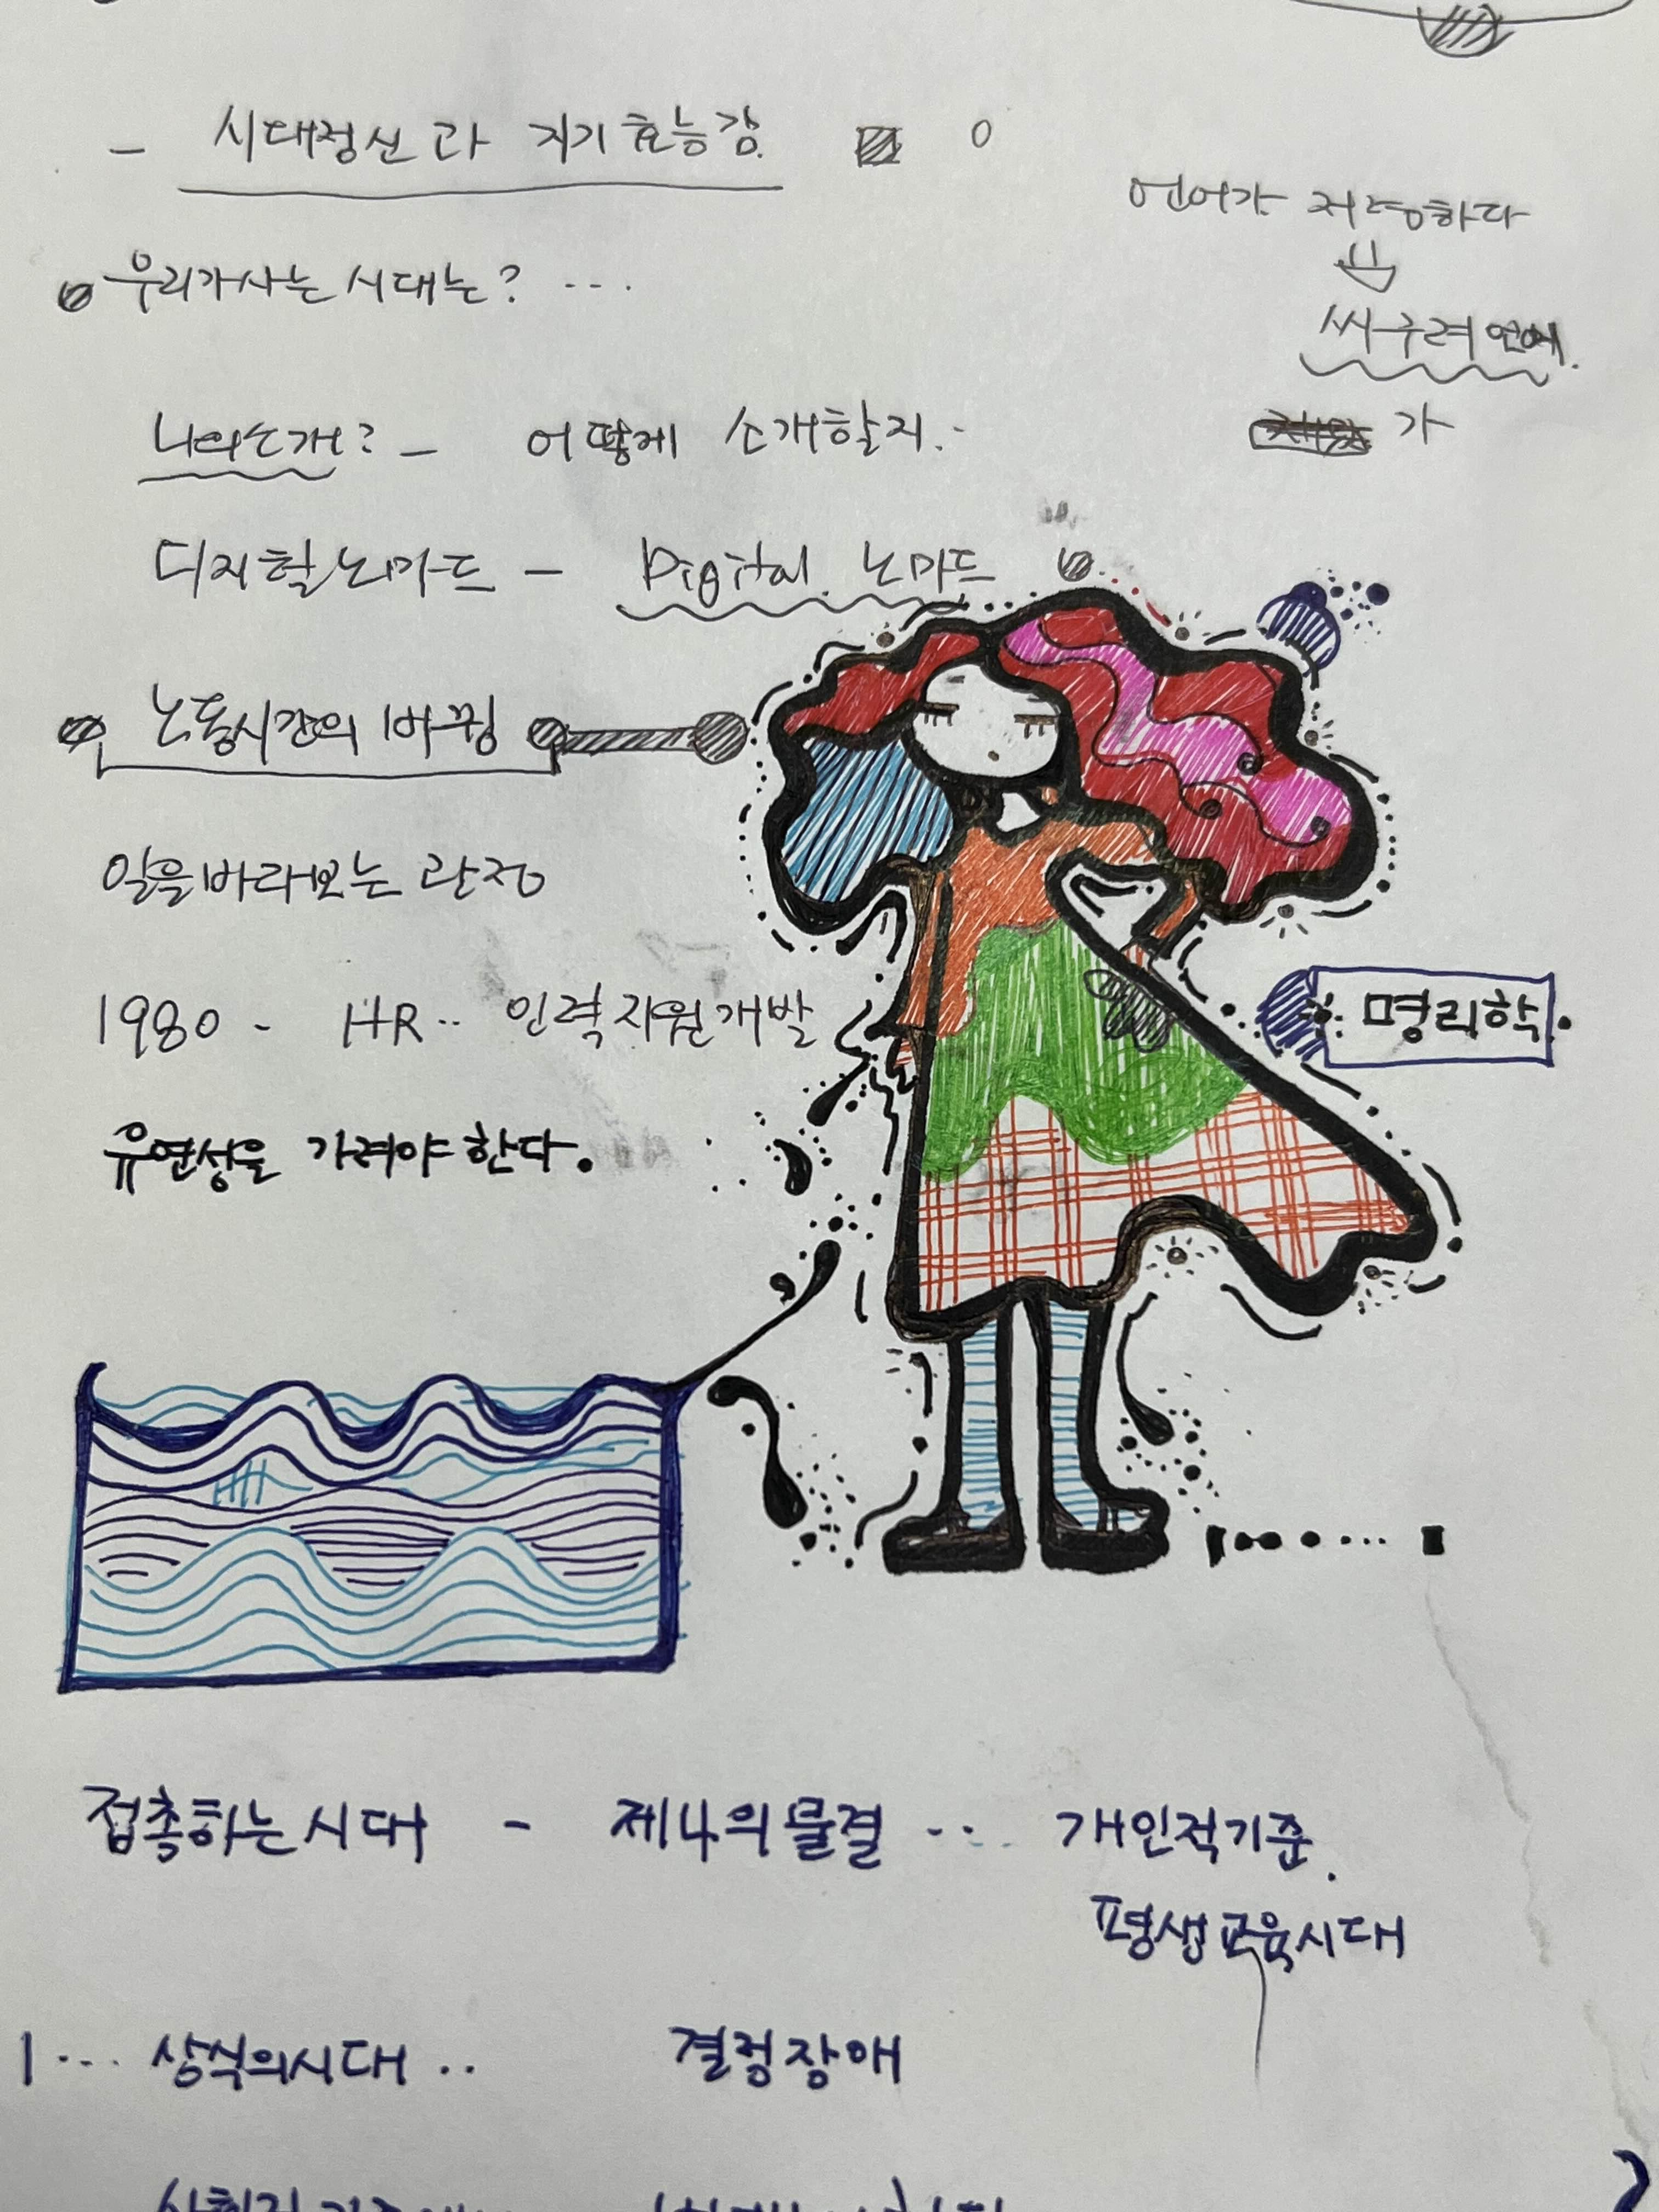 - 시대정신과 자기효능감.
언어가 저렴하다
우리가사는 시대는? ...
싸구려 언어.
가
나의소개? - 어떻게 소개할지..
디지털노마드 - Digital 노마드
노동시간의 바뀜
일을바라보는 관점
1980 - HR.. 인력자원개발
명리학.
유연성을 가려야한다.
접촉하는시대 - 제4의물결 .. 개인적기준.
평생교육시대
1... 상식의시대 .. 결정장애